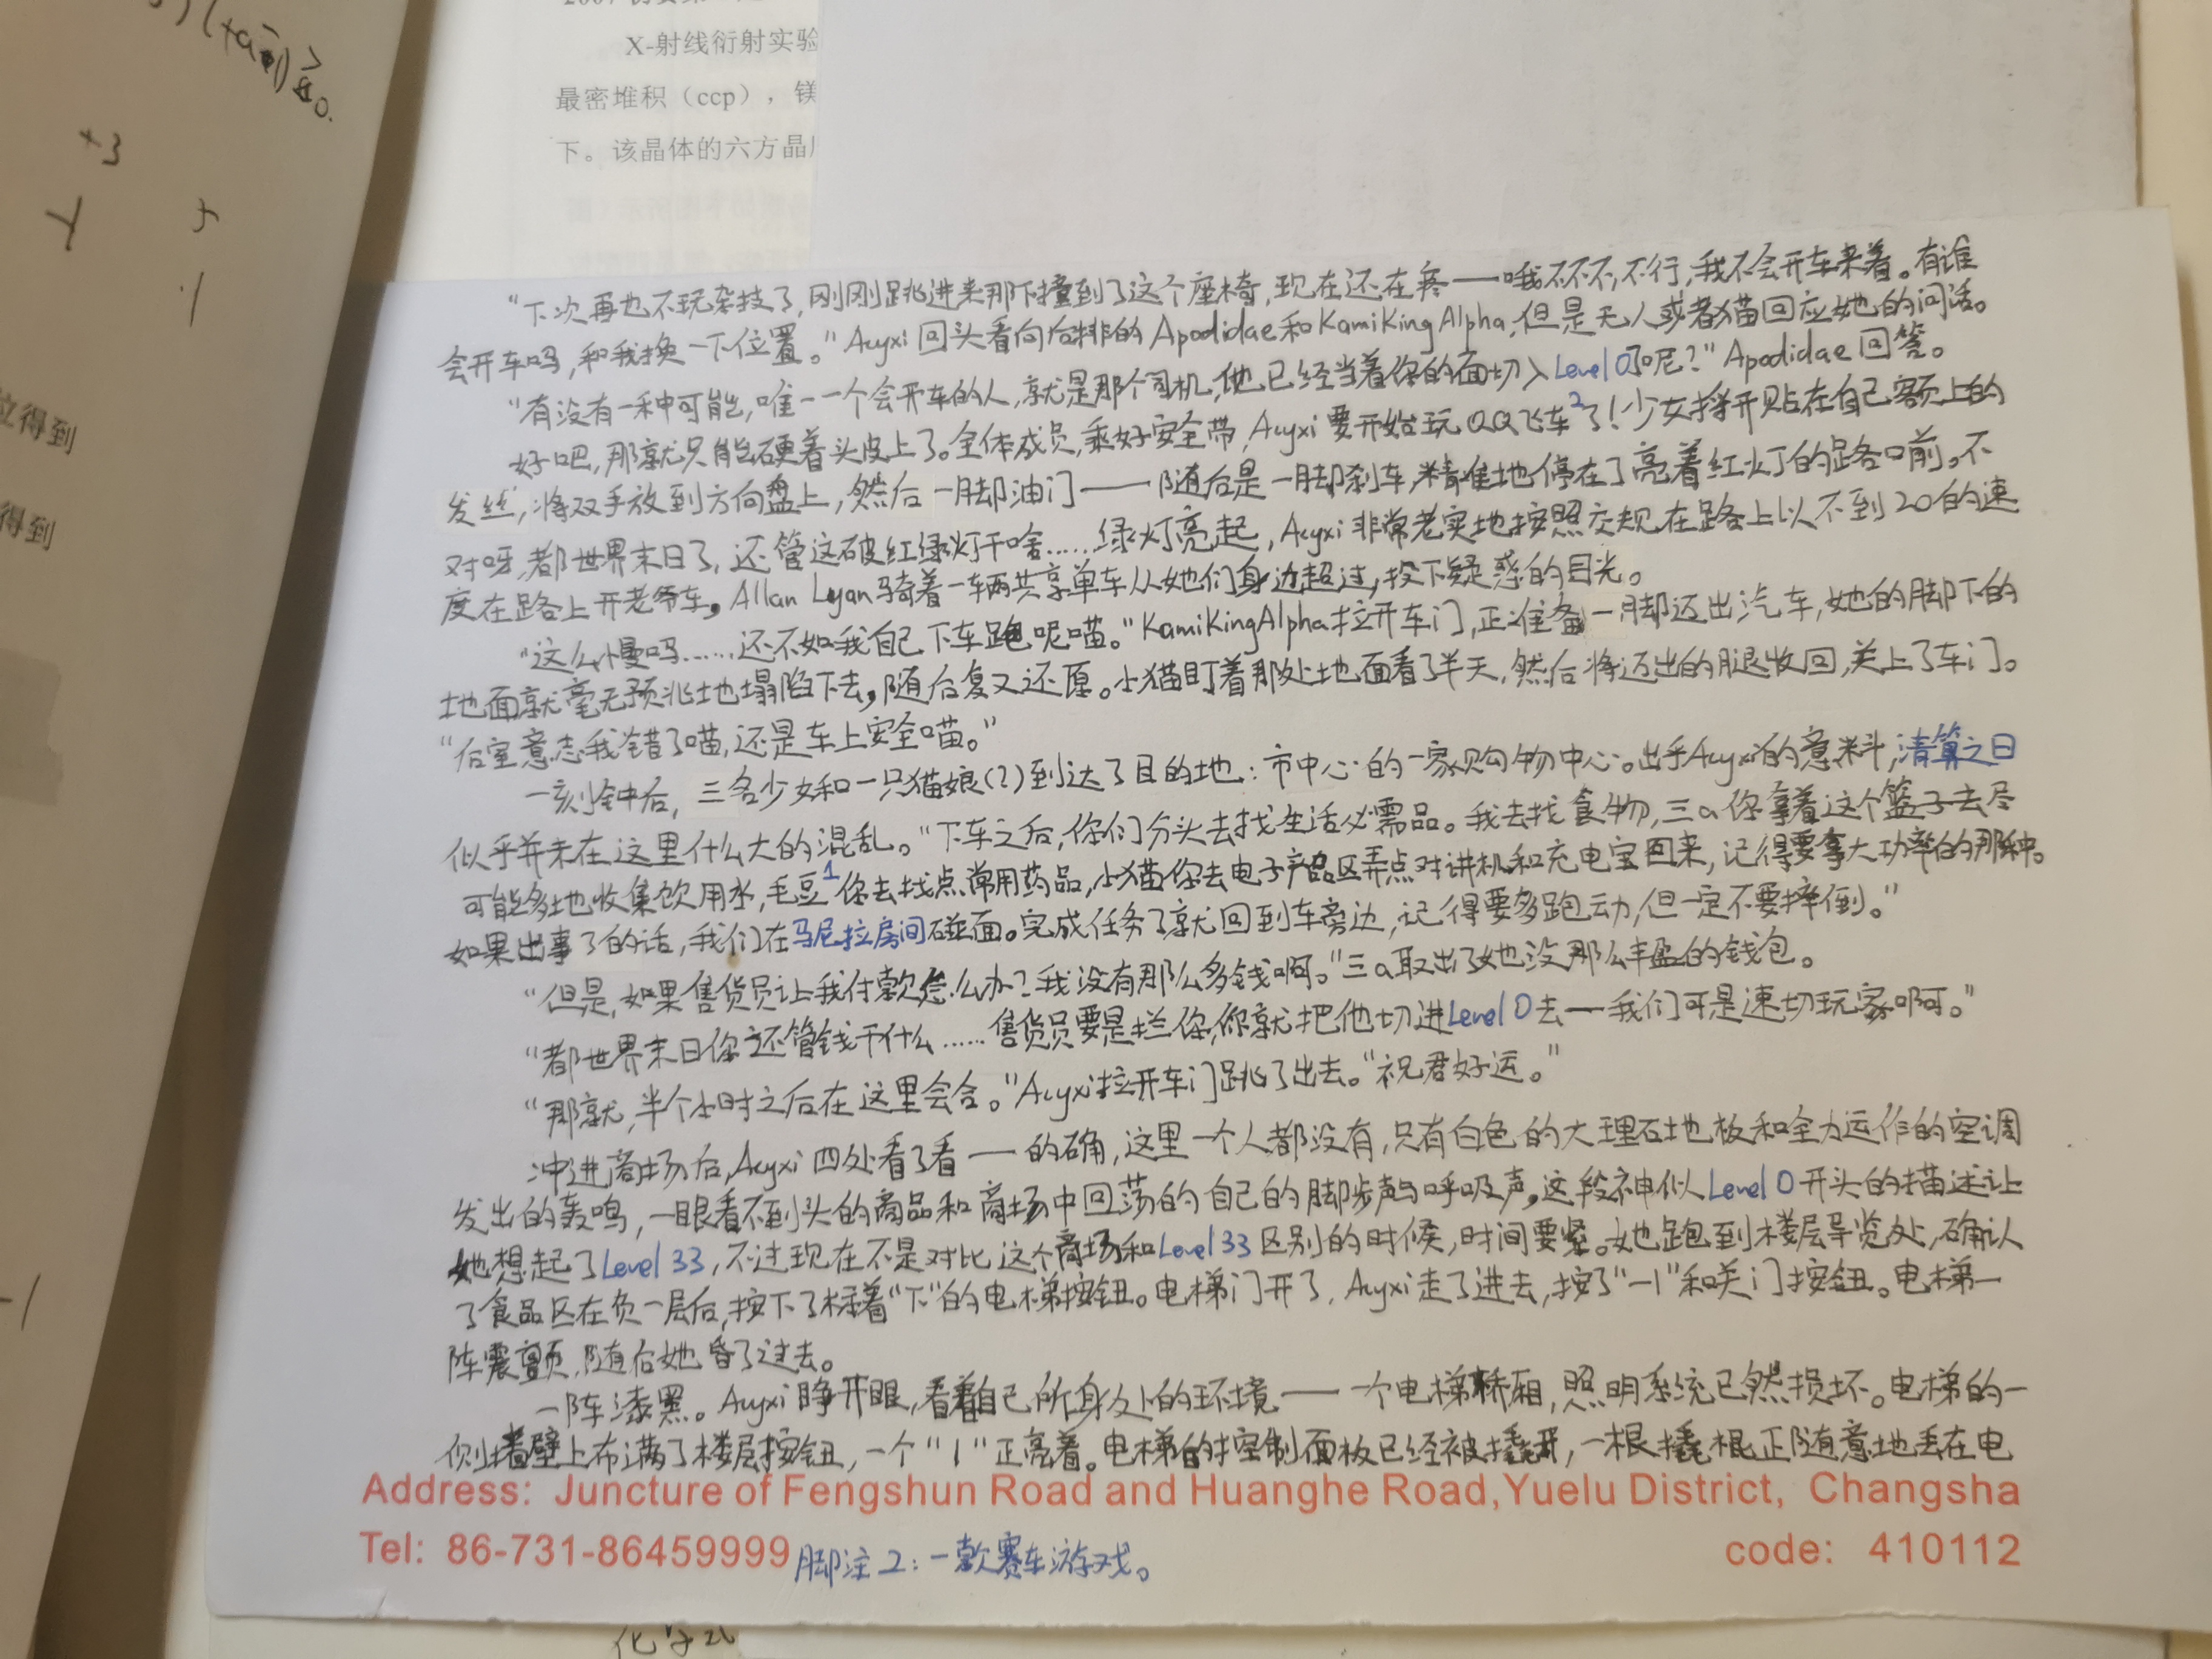 X-射线衍射实验
最密堆积（ccp），镁
下。该晶体的六方晶
+3
位得到
得到
“下次再也不玩杂技了，刚刚跳进来那下撞到了这个座椅，现在还在疼——哦不不不，不行，我不会开车来着。有谁
会开车吗，和我换一下位置。”Acyxi回头看向后排的Apodidae和KamiKingAlpha，但是无人或者猫回应她的问话。
“有没有一种可能，唯一一个会开车的人，就是那个司机，他已经当着你的面切入Level 0了呢？”Apodidae回答。
好吧，那就只能硬着头皮上了。全体成员，乘好安全带，Acyxi要开始玩QQ飞车2了！少女捋开贴在自己额上的
发丝，将双手放到方向盘上，然后一脚油门——随后是一脚刹车，精准地停在了亮着红灯的路口前。不
对呀，都世界末日了，还管这破红绿灯干啥……绿灯亮起，Acyxi非常老实地按照交规在路上以不到20的速
度在路上开老爷车。Allan Lyan骑着一辆共享单车从她们身边超过，投下疑惑的目光。
“这么慢吗……还不如我自己下车跑呢喵。”KamiKingAlpha拉开车门，正准备一脚迈出汽车，她的脚下的
地面就毫无预兆地塌陷下去，随后复又还愿。小猫盯着那处地面看了半天，然后将迈出的腿收回，关上了车门。
“后室意志我错了喵，还是车上安全喵。”
一刻钟后，三名少女和一只猫娘（？）到达了目的地：市中心的一家购物中心。出乎Acyxi的意料，清算之日
似乎并未在这里什么大的混乱。“下车之后，你们分头去找生活必需品。我去找食物，三a你拿着这个篮子去尽
可能多地收集饮用水，毛豆1你去找点常用药品，小猫你去电子产品区弄点对讲机和充电宝回来，记得要拿大功率的那种。
如果出事了的话，我们在马尼拉房间碰面。完成任务了就回到车旁边，记得要多跑动，但一定不要摔倒。”
“但是，如果售货员让我付款怎么办？我没有那么多钱啊。”三a取出了她没那么丰盈的钱包。
“都世界末日你还管钱干什么……售货员要是拦你，你就把他切进Level 0去——我们可是速切玩家啊。”
“那就，半个小时之后在这里会合。”Acyxi拉开车门跳了出去。“祝君好运。”
冲进商场后，Acyxi四处看了看——的确，这里一个人都没有，只有白色的大理石地板和全力运作的空调
发出的轰鸣，一眼看不到头的商品和商场中回荡的自己的脚步声与呼吸声。这段神似Level 0开头的描述让
她想起了Level 33，不过现在不是对比这个商场和Level 33区别的时候，时间要紧。她跑到楼层导览处，确认
了食品区在负一层后，按下了标着“下”的电梯按钮。电梯门开了，Acyxi走了进去，按了“-1”和关门按钮。电梯一
阵震颤，随后她昏了过去。
一阵漆黑。Acyxi睁开眼，看着自己所身处的环境——一个电梯轿厢，照明系统已然损坏。电梯的一
侧墙壁上布满了楼层按钮，一个“1”正亮着。电梯的控制面板已经被撬开，一根撬棍正随意地丢在电
Address: Juncture of Fengshun Road and Huanghe Road,Yuelu District, Changsha
Tel: 86-731-86459999 code: 410112
脚注2：一款赛车游戏。
化学式